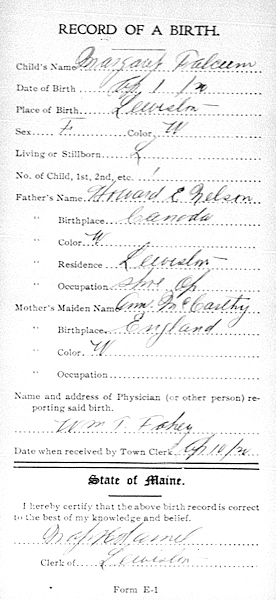 RECORD OF A BIRTH.
Child's Name Margaret
Date of Birth 1
Place of Birth Lewiston
Sex F Color W
Living or Stillborn L
No. of Child, 1st, 2nd, etc. 1
Father's Name Howard E Nelson
" Birthplace Canada
" Color W
" Residence Lewiston
" Occupation Shoe Op
Mother's Maiden Name McCarthy
" Birthplace England
" Color W
" Occupation
Name and address of Physician (or other person) re-
porting said birth.
Wm T. Fahey
Date when received by Town Clerk
State of Maine.
I hereby certify that the above birth record is correct
to the best of my knowledge and belief.
Clerk of Lewiston
Form E-1